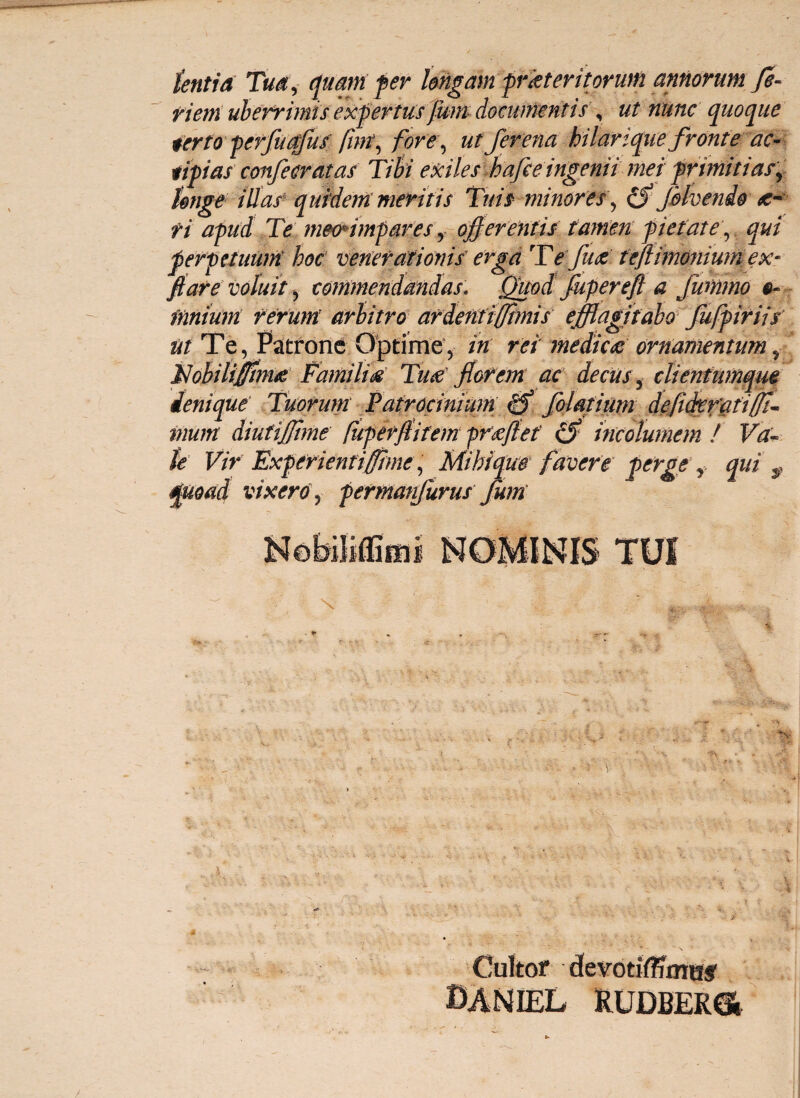 lentia Tua, quam per longam præteritorum annorum ſe-
riem uberrimis expertus ſum documentis, ut nunc quoque
certo perſuaſus ſim, fore, ut ſerena hilarique fronte ac-
cipias conſecratas Tibi exiles haſce ingenii mei primitias,
longe illas quidem meritis Tuis minores, & ſolvendo æ-
ri apud Te meo impares, offerentis tamen pietate, qui
perpetuum hoc venerationis erga Te ſuæ teſtimonium ex-
ſtare voluit, commendandas. Quod ſupereſt a ſummo o-
mnium rerum arbitro ardentiſſimis efflagitabo ſuſpiriis
ut Te, Patrone Optime, in rei medicæ ornamentum,
Nobiliſſimæ Familiæ Tuæ florem ac decus, clientumque
denique Tuorum Patrocinium & ſolatium deſideratiſſi-
mum diutiſſime ſuperſtitem præſtet & incolumem ! Va-
le Vir Experientiſſime, Mihique favere perge, qui,
quoad vixero, permanſurus ſum
Nobiliſſimi NOMINIS TUI
Cultor devotiſſimus
DANIEL RUDBERG